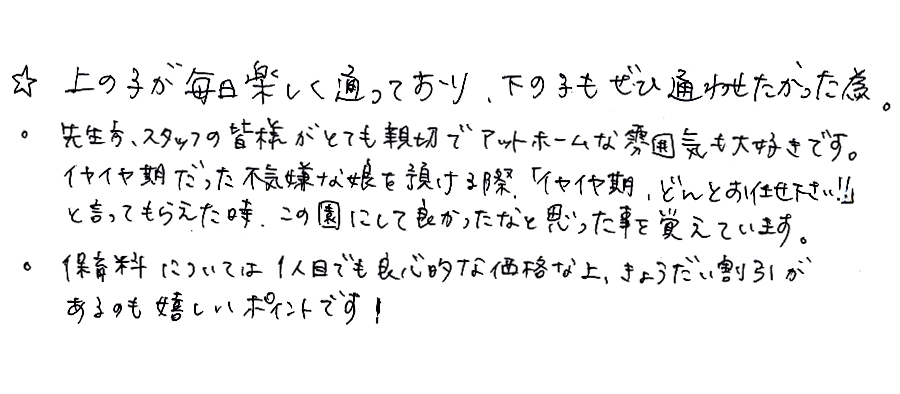 ☆ 上の子が毎日楽しく通っており、下の子もぜひ通わせたかった為。
・先生方、スタッフの皆様がとても親切でアットホームな雰囲気も大好きです。
イヤイヤ期だった不気嫌な娘を預ける際、「イヤイヤ期、どんとお任せ下さい!!」
と言ってもらえた時、この園にして良かったなと思った事を覚えています。
・保育料については1人目でも良心的な価格な上、きょうだい割引が
あるのも嬉しいポイントです!